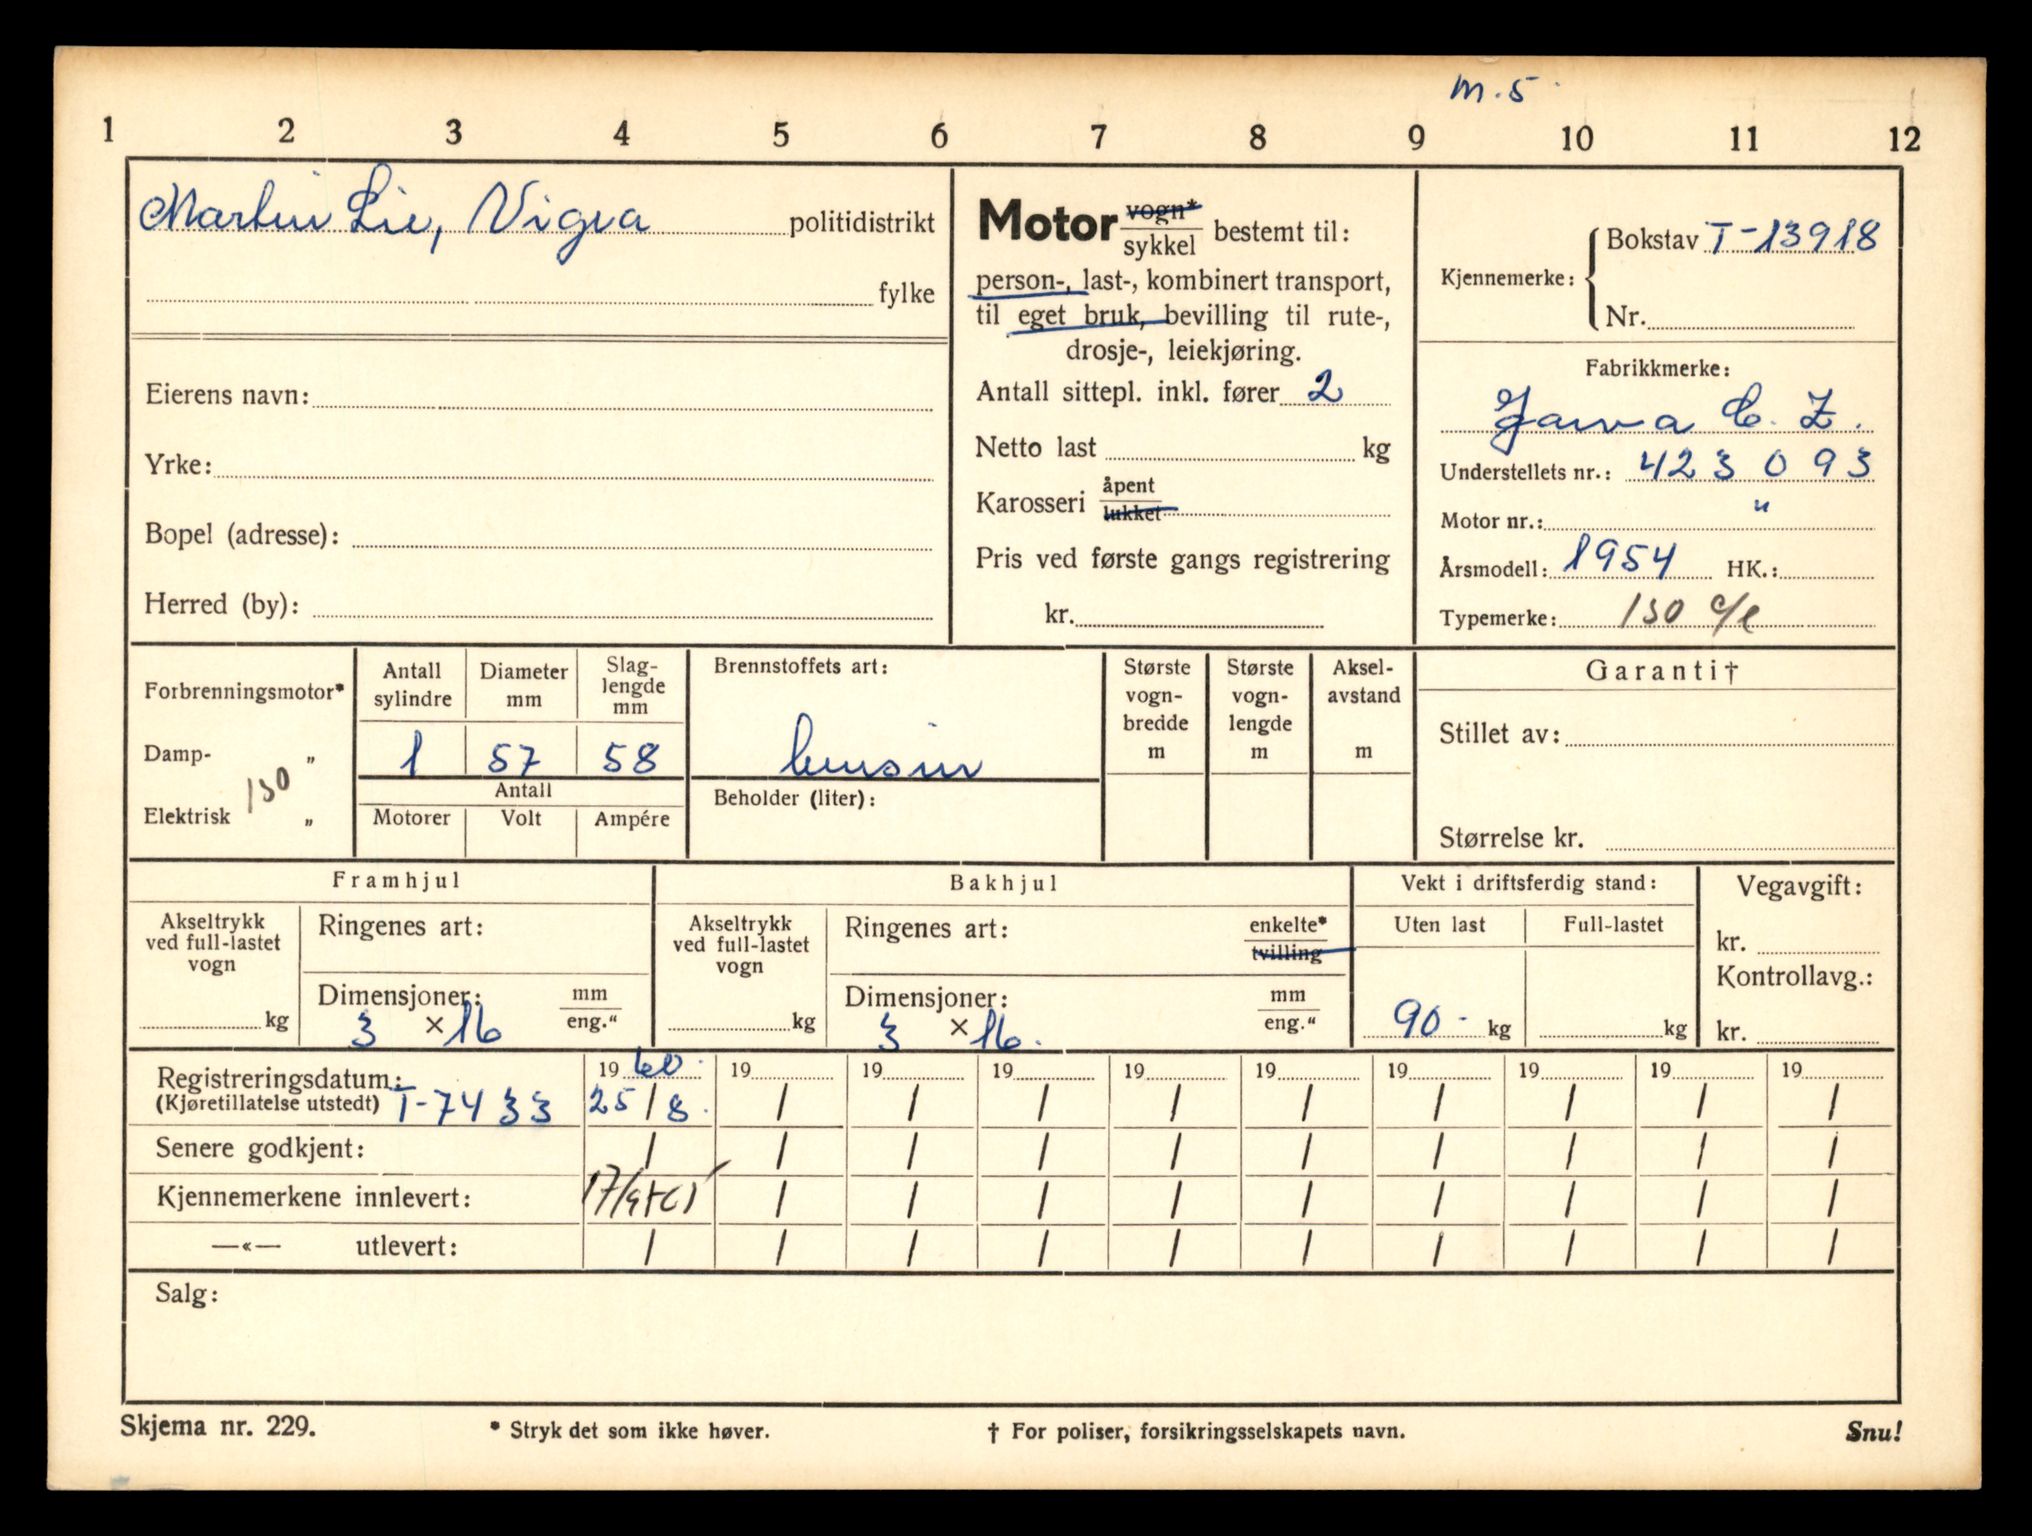 m.5
1 2 3 4 5 6 7 8 9 10 11 12
Martin Lie, Vigra politidistrikt
fylke
Eierens navn:
Yrke:
Bopel (adresse):
Herred (by):
Motor vogn* / sykkel bestemt til:
person-, last-, kombinert transport,
til eget bruk, bevilling til rute-,
drosje-, leiekjøring.
Antall sittepl. inkl. fører 2
Netto last kg
Karosseri åpent / lukket
Pris ved første gangs registrering
kr.
Kjennemerke: { Bokstav T-13918
Nr.
Fabrikkmerke:
Jawa C. Z.
Understellets nr.: 423093
Motor nr.: "
Årsmodell: 1954 HK.:
Typemerke: 150
Forbrenningsmotor*
Damp- „
Elektrisk 150 „
Antall sylindre Diameter mm Slag-lengde mm
1 57 58
Antall
Motorer Volt Ampére
Brennstoffets art:
bensin
Beholder (liter):
Største vogn-bredde m
Største vogn-lengde m
Aksel-avstand m
Garanti†
Stillet av:
Størrelse kr.
Framhjul
Akseltrykk ved full-lastet vogn
kg
Ringenes art:
Dimensjoner: mm / eng."
3 × 16
Bakhjul
Akseltrykk ved full-lastet vogn
kg
Ringenes art: enkelte* / tvilling
Dimensjoner: mm / eng."
3 × 16.
Vekt i driftsferdig stand:
Uten last Full-lastet
90 kg kg
Vegavgift:
kr.
Kontrollavg.:
kr.
Registreringsdatum: 1960 19 19 19 19 19 19 19 19 19
(Kjøretillatelse utstedt) T-7433 25/8. / / / / / / / / /
Senere godkjent: / / / / / / / / / /
Kjennemerkene innlevert: / / / / / / / / /
—«— utlevert: / / / / / / / / / /
Salg:
Skjema nr. 229. * Stryk det som ikke høver. † For poliser, forsikringsselskapets navn. Snu!